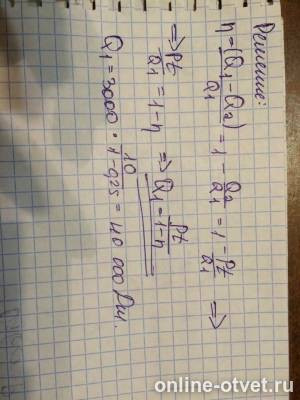 Решение:
η = (Q1 - Q2) / Q1 = 1 - Q2/Q1 = 1 - Pt/Q1 ⇒
⇒ Pt/Q1 = 1 - η ⇒ Q1 = Pt/1-η
Q1 = 3000 · 10/1-0,25 = 40 000 Дж.
online-otvet.ru